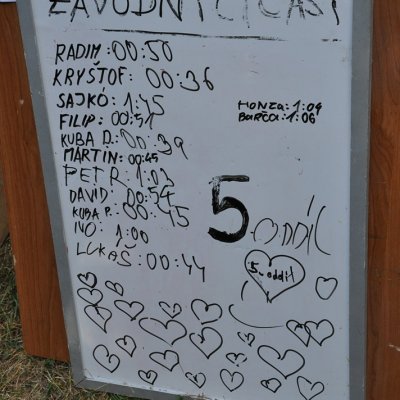 ZÁVODNÍ ČÁSY
RADIM: 00:50
KRYŠTOF: 00:36
SAJKÓ: 1:45
FILIP: 00:51
KUBA D.: 00:39
MARTIN: 00:45
PETR: 1:03
DAVID: 00:54
KUBA P.: 00:45
IVO: 1:00
LUKAŠ: 00:44
HONZA: 1:04
BARČA: 1:06
5. ODDÍL
5. oddíl